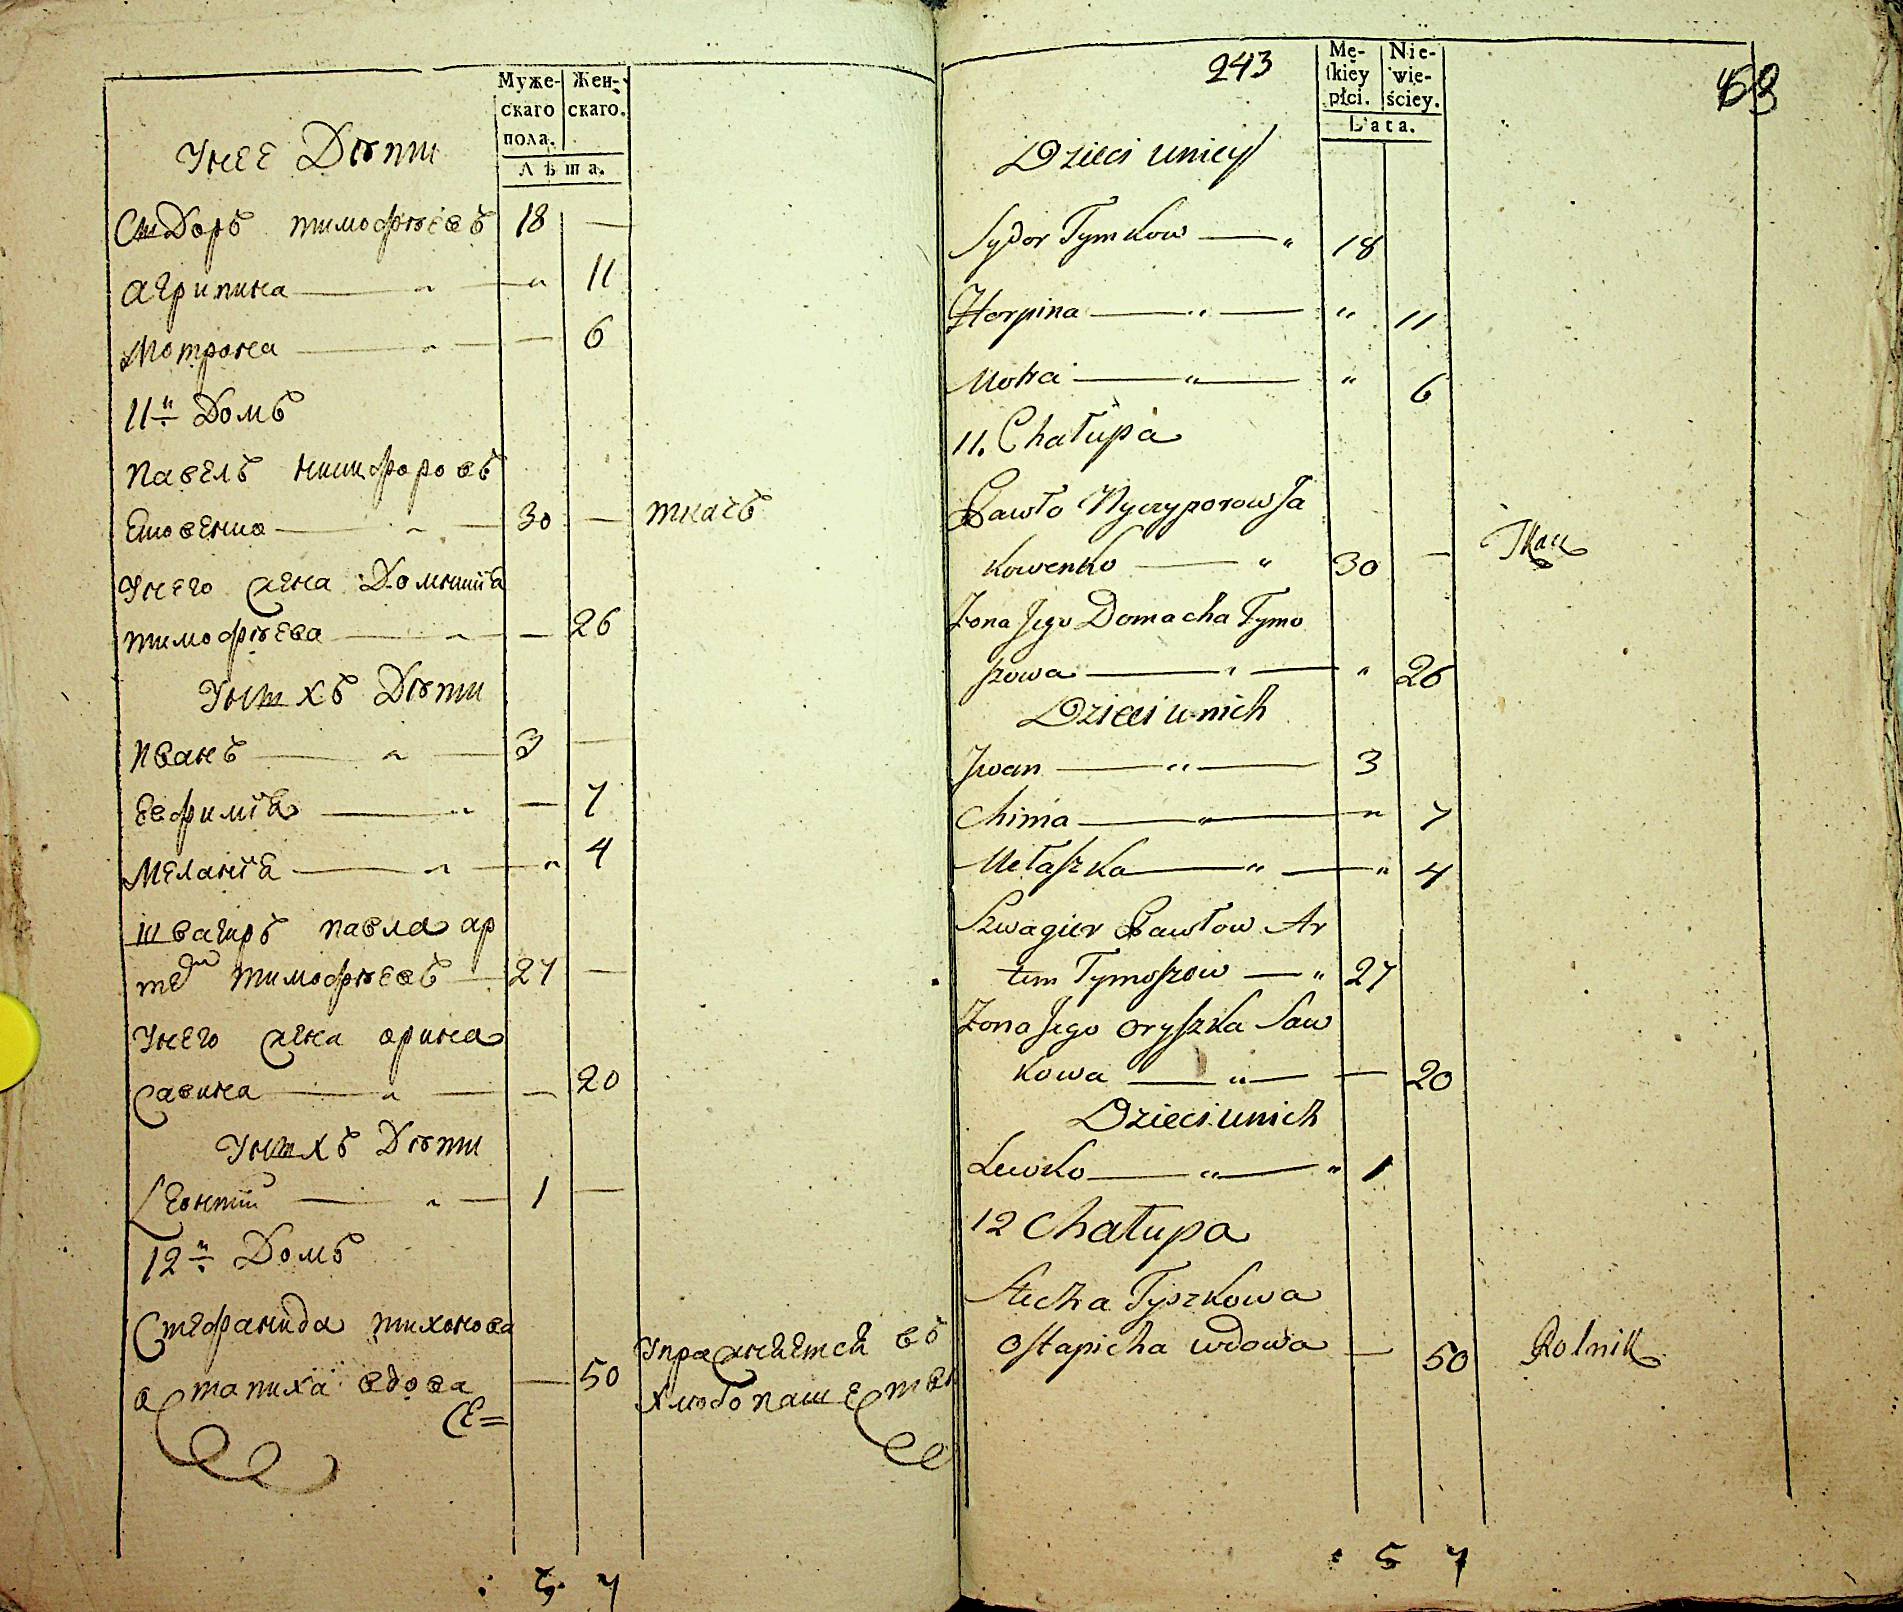 Муже-
скаго
пола.
Жен-
скаго.
Лѣта.
Унее Дѣти
Сидоръ тимофѣевъ 18 —
агрипина — " — " 11
Мотрона — " — — 6
11й Домъ
павелъ никифоровъ
Яковенко — " — 30 — ткачъ
Унего жена Домникія
тимофѣева — " — — 26
Унихъ Дѣти
иванъ — " — 3 —
Евфимія — " — 7
Меланія — " — " 4
швагиръ павла ар
темй тимофѣевъ — 27 —
Унего жена орина
савина — " — — 20
Унихъ Дѣти
Леонтій — " — 1 —
12й Домъ
Стефанида тихонова
остапиха вдова — 50
Упражняется въ
хлѣбопашествѣ
се=
5 7
243
Mę-
skiey
płci.
Nie-
wie-
ściey.
Lata.
Dzieci u niey
Sydor Tymkow — " 18
Horpina — " — " 11
Motra — " — " 6
11. Chałupa
Pawło Nyczyporow Ja
kowenko — " 30 — Tkacz
Żona Jego Domacha Tymo
szowa — " — " 26
Dzieci u nich
Jwan — " — 3
Chima — " — " 7
Mełaszka — " — " 4
Szwagier Pawłow Ar
tem Tymoszow — " 27
Żona Jego Oryszka Saw
kowa — " — — 20
Dzieci u nich
Lewko — " — " 1
12 Chałupa
Stecha Tyszkowa
Ostapicha wdowa — 50 Rolnik
5 7